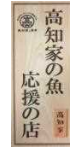 高知家の魚
応援の店
高知家